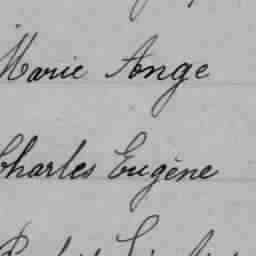 Marie Ange
Charles Eugène